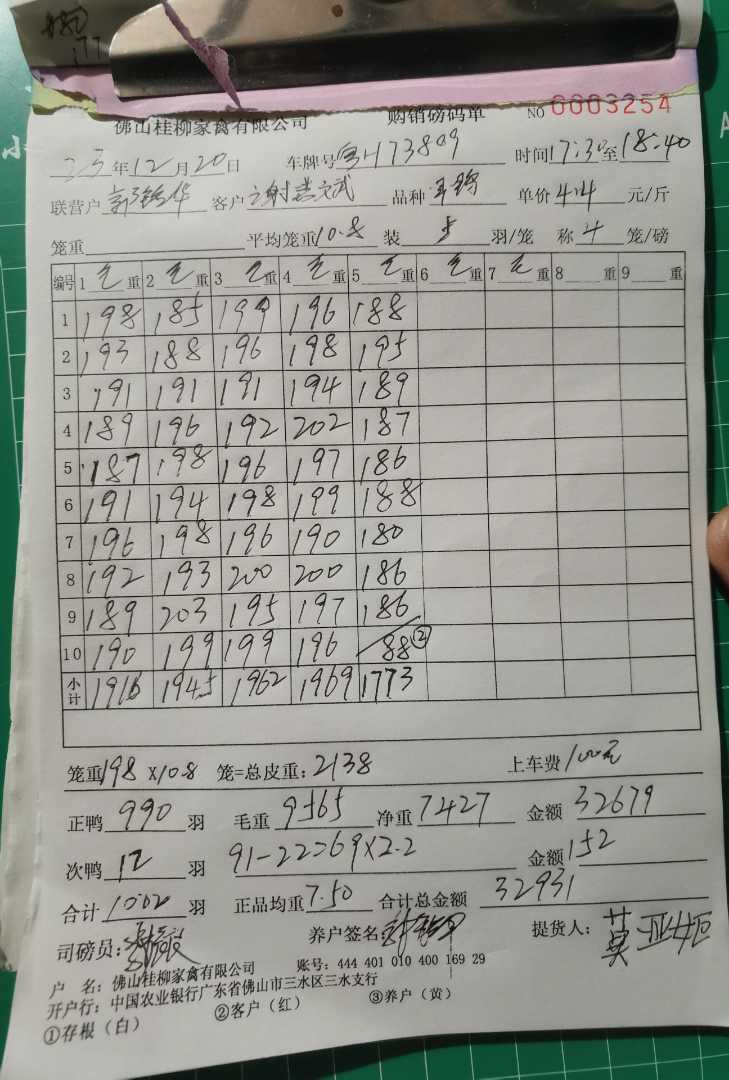 佛山桂柳家禽有限公司 购销磅码单 NO 0003254
23年12月20日 车牌号粤H73809 时间17:30至18:40
联营户 客户 谢 武 品种 单价4.4元/斤
笼重 平均笼重10.8 装5羽/笼 称4笼/磅
编号 1毛重 2毛重 3毛重 4毛重 5毛重 6毛重 7毛重 8 重 9 重
1 198 185 199 196 188
2 193 188 196 198 195
3 191 191 191 194 189
4 189 196 192 202 187
5 187 198 196 197 186
6 191 194 198 199 188
7 196 198 196 190 180
8 192 193 200 200 186
9 189 203 195 197 186
10 190 199 199 196 88②
小计 1916 1945 1962 1969 1773
笼重198×10.8 笼=总皮重:2138 上车费100元
正鸭 990 羽 毛重 9565 净重 7427 金额 32679
次鸭 12 羽 91-22=69×2.2 金额152
合计 1002 羽 正品均重7.50 合计总金额 32931
司磅员: 养户签名 提货人:莫亚妲
户 名:佛山桂柳家禽有限公司 账号:444 401 010 400 169 29
开户行:中国农业银行广东省佛山市三水区三水支行
①存根(白) ②客户(红) ③养户(黄)